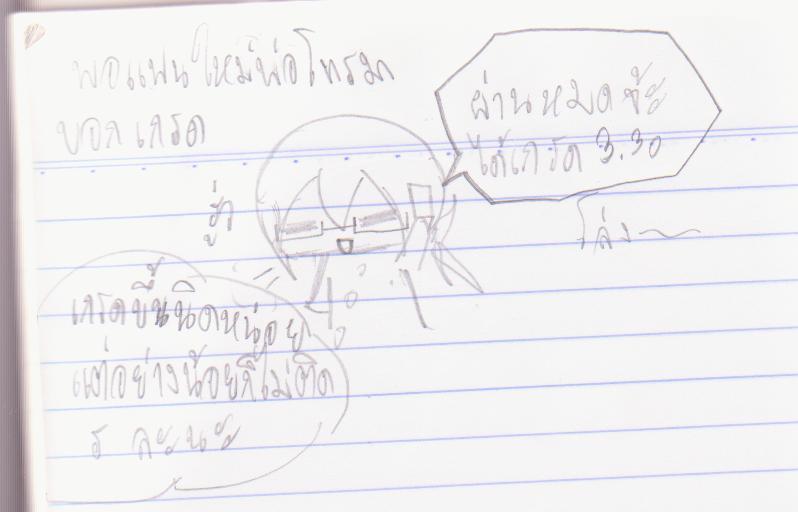 พอแฟนใหม่พ่อโทรมา
บอกเกรด
ผ่านหมดจ้ะ
ได้เกรด 3.30
ฮู่ว
โล่ง~
เกรดขึ้นนิดหน่อย
แต่อย่างน้อยก็ไม่ติด
ร ละนะ